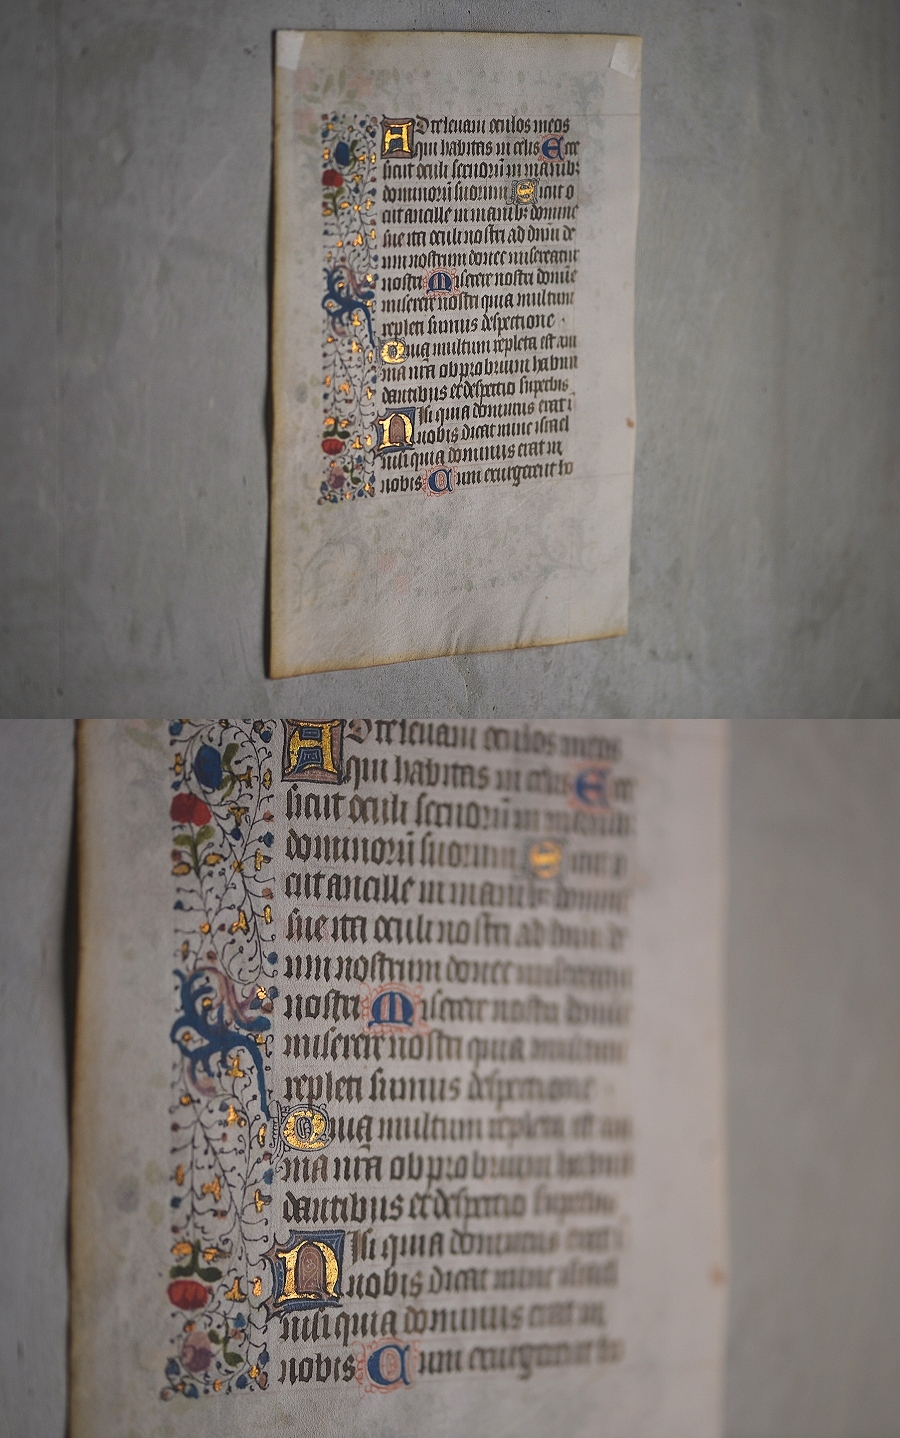 AD te levavi oculos meos
qui habitas in celis Ecce
sicut oculi servorū in manibꝫ
dominorū suorum Sicut o
culi ancille in manibꝫ domine
sue ita oculi nostri ad dnm de
um nostrum donec misereatur
nostri Miserere nostri domīe
miserere nostri quia multum
repleti sumus despectione
Quia multum repleta est ani
ma nrā obprobrium habun
dantibus et despectio superbis
NIsi quia dominus erat ī
nobis dicat nunc israel
nisi quia dominus erat in
nobis Cum exurgerent ho